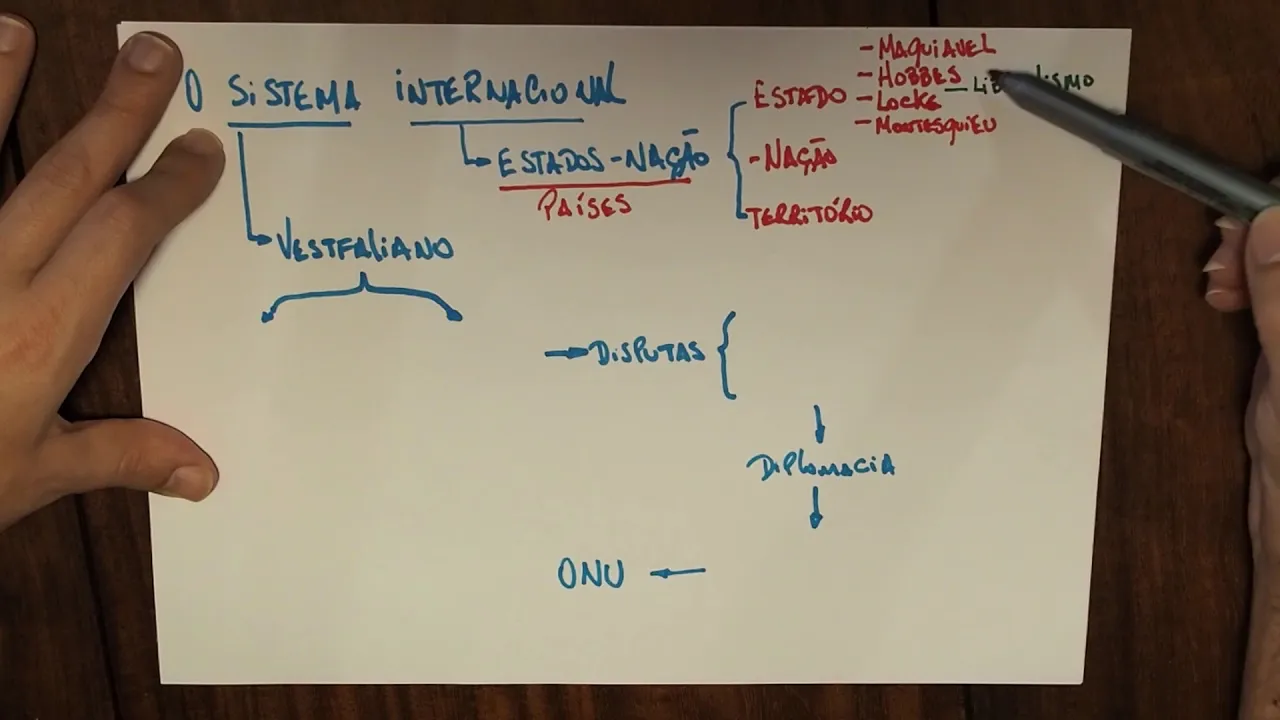 O SISTEMA INTERNACIONAL
ESTADOS-NAÇÃO
PAÍSES
ESTADO
- MAQUIAVEL
- HOBBES
- LOCKE
- MONTESQUIEU
- NAÇÃO
TERRITÓRIO
VESTFALIANO
DISPUTAS
DIPLOMACIA
ONU